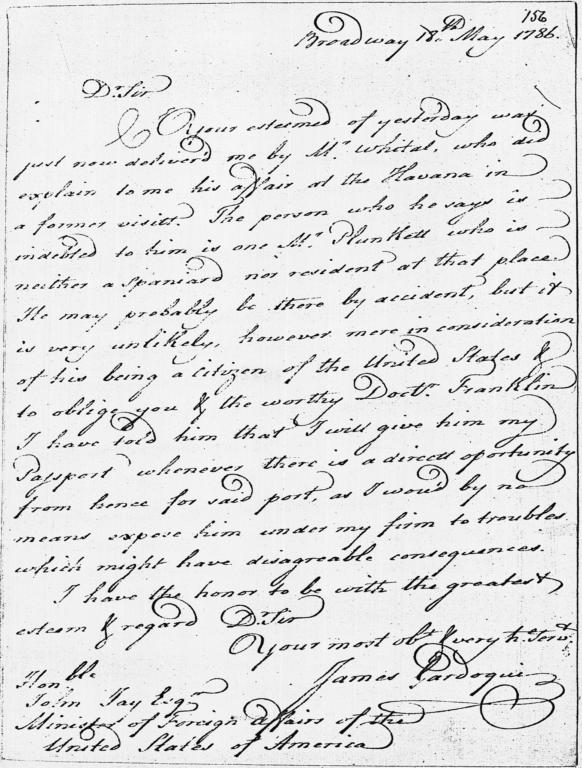 156
Broadway 18.th May 1786.
Dr. Sir
Your esteemed of yesterday was
just now deliver'd me by Mr. Whital, who did
explain to me his affair at the Havana in
a former visitt. The person who he says is
indebted to him is one Mr. Plunkett who is
neither a spaniard nor resident at that place.
He may probably be there by accident, but it
is very unlikely, however mere in consideration
of his being a citizen of the United States &
to oblige you & the worthy Doctr. Franklin
I have told him that I will give him my
Passport whenever there is a direct oportunity
from hence for said port, as I wou'd by no
means expose him under my firm to troubles
which might have disagreable consequences.
I have the honor to be with the greatest
esteem & regard Dr. Sir
Your most obt. & very he. Servt.
James Gardoqui
Honble
John Jay Esqr.
Minister of Foreign affairs of the
United States of America